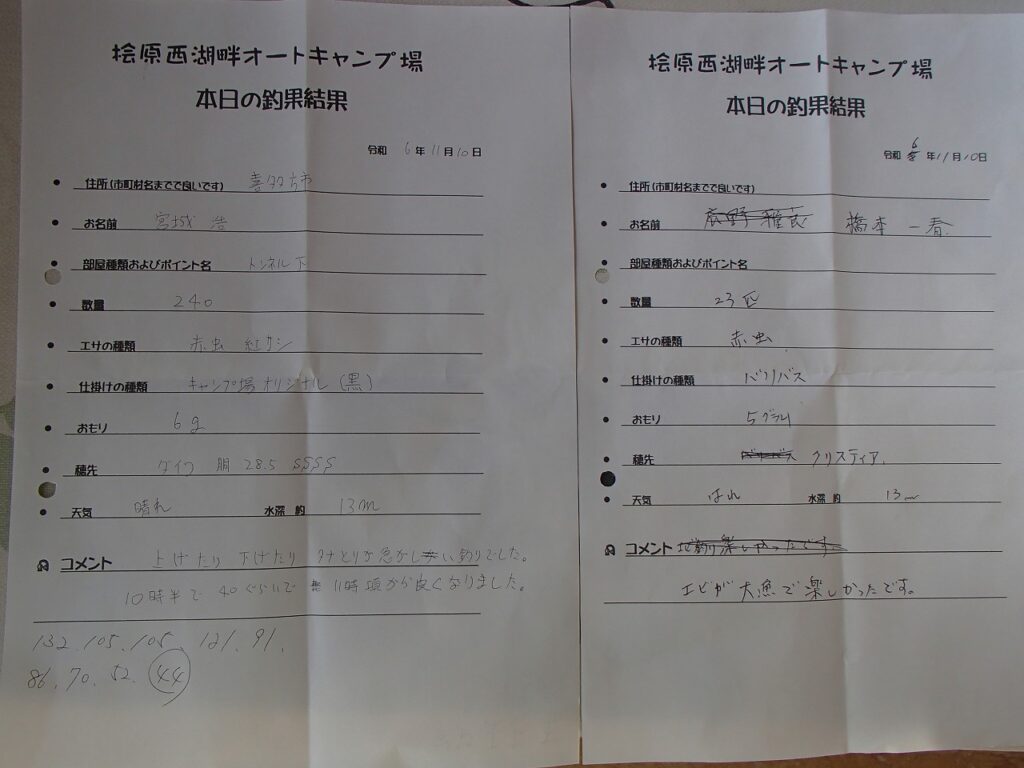 桧原西湖畔オートキャンプ場
本日の釣果結果
令和 6年 11月 10日
• 住所(市町村名までで良いです) 喜多方市
• お名前 宮城 浩
• 部屋種類およびポイント名 トンネル下
• 数量 240
• エサの種類 赤虫 紅サシ
• 仕掛けの種類 キャンプ場オリジナル(黒)
• おもり 6g
• 穂先 ダイワ 胴 28.5 SSSS
• 天気 晴れ 水深 約 13m
コメント 上げたり 下げたり タナとりが忙がしい釣りでした。
10時半で 40ぐらいで 11時頃から良くなりました。
132. 105. 105. 121. 91.
86. 70. 52. 44
桧原西湖畔オートキャンプ場
本日の釣果結果
令和 6年 11月 10日
• 住所(市町村名までで良いです)
• お名前 辰野 雅良 橋本 一春
• 部屋種類およびポイント名
• 数量 23匹
• エサの種類 赤虫
• 仕掛けの種類 バリバス
• おもり 5グラム
• 穂先 クリスティア.
• 天気 はれ 水深 約 13m
コメント
エビが大漁で楽しかったです。